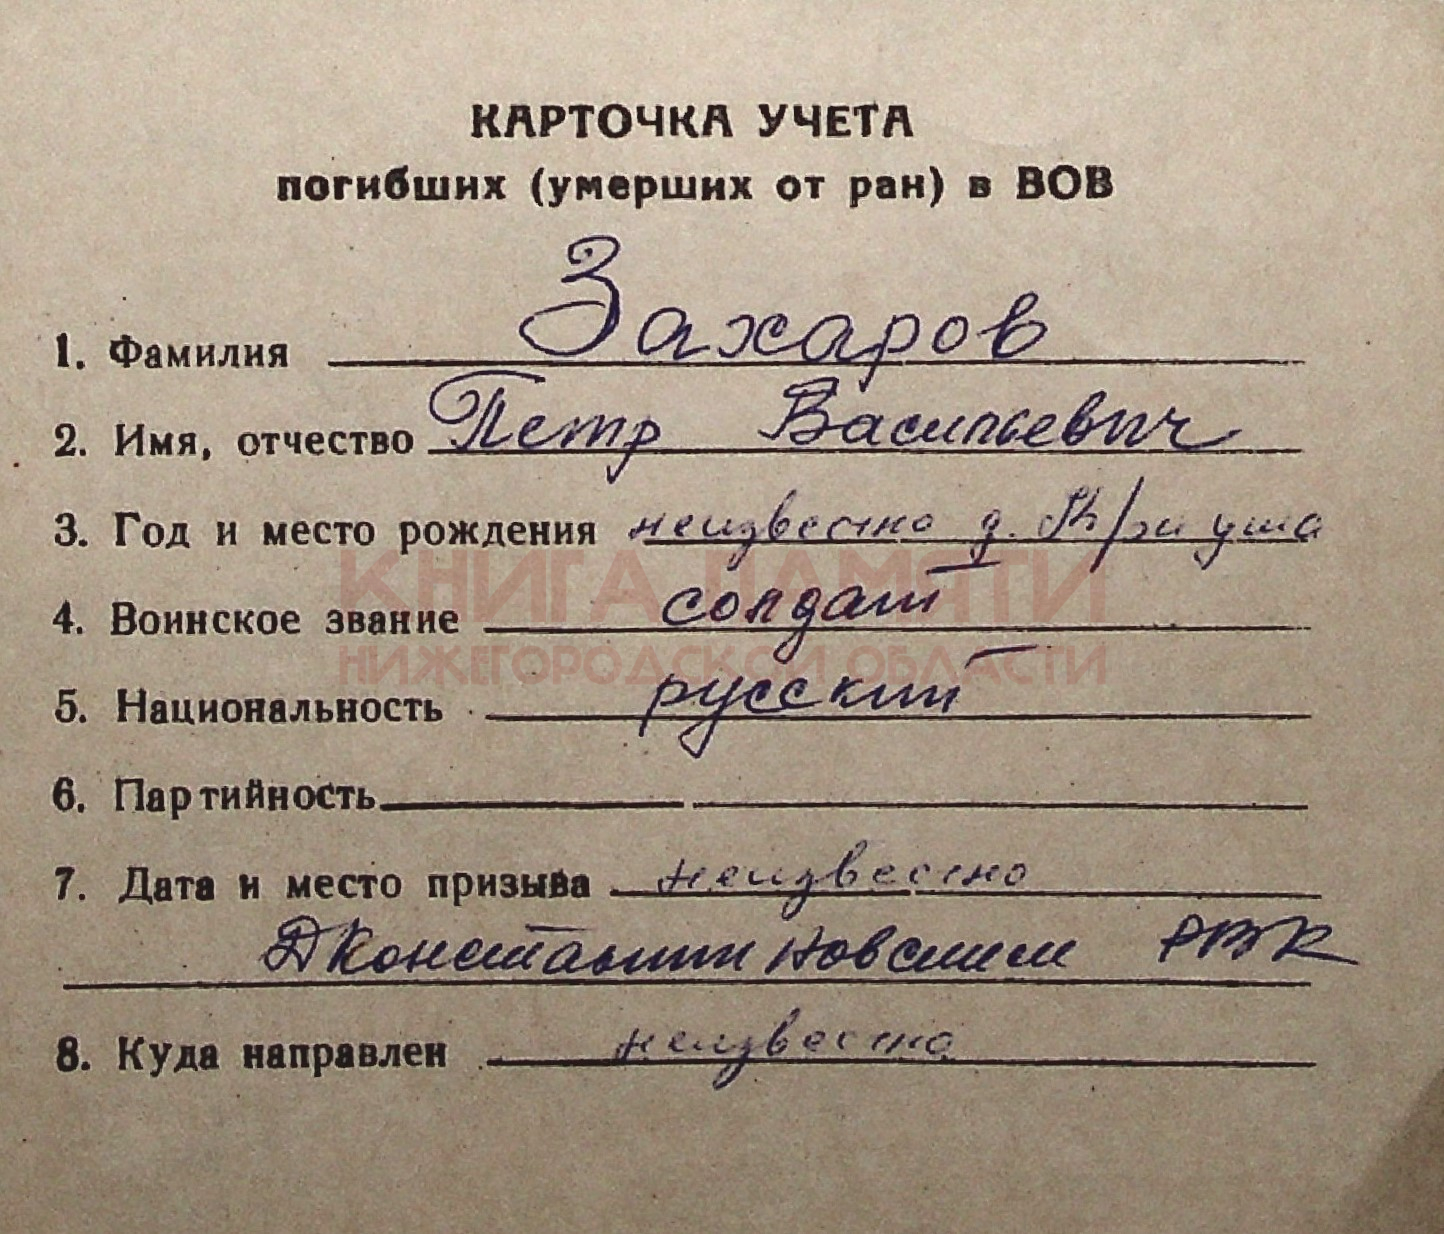 КАРТОЧКА УЧЕТА
погибших (умерших от ран) в ВОВ
1. Фамилия Захаров
2. Имя, отчество Петр Васильевич
3. Год и место рождения неизвестно д. Криуша
КНИГА ПАМЯТИ
4. Воинское звание солдат
НИЖЕГОРОДСКОЙ ОБЛАСТИ
5. Национальность русский
6. Партийность
7. Дата и место призыва неизвестно
ДКонстантиновским РВК
8. Куда направлен неизвестно